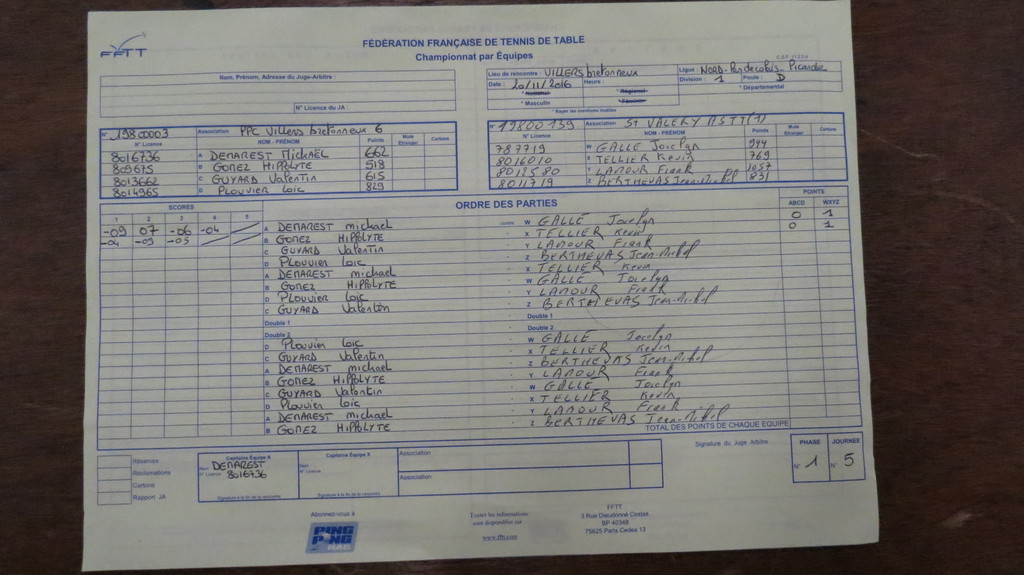 FFTT
FÉDÉRATION FRANÇAISE DE TENNIS DE TABLE
Championnat par Équipes
Nom, Prénom, Adresse du Juge-Arbitre :
N° Licence du JA :
Lieu de rencontre : VILLERS bretonneux Ligue : NORD-Pas de calais-Picardie
Date : 20/11/2016 Heure : Division : 1 Poule : D
* National * Régional * Départemental
* Masculin * Féminin
* Rayer les mentions inutiles
N° 19800003 Association PPC Villers bretonneux 6
N° Licence NOM - PRÉNOM Points Muté Etranger Cartons
8016736 A DEMAREST Mickaël 662
809675 B GOMEZ HIPPOLYTE 518
8013662 C GUYARD Valentin 615
8014965 D PLOUVIER Loic 829
N° 19800139 Association St VALERY ASTT (1)
N° Licence NOM - PRÉNOM Points Muté Etranger Cartons
787719 W GALLE Jocelyn 944
8016010 X TELLIER Kevin 769
8012580 Y LAMOUR Frank 1057
8011719 Z BERTHEVAS Jean-Michel 831
SCORES ORDRE DES PARTIES POINTS
1 2 3 4 5 ABCD WXYZ
-09 07 -06 -04 A DEMAREST michael contre W GALLE Jocelyn 0 1
-04 -09 -05 B GOMEZ HIPPOLYTE - X TELLIER Kevin 0 1
C GUYARD Valentin - Y LAMOUR Frank
D Plouvier Loic - Z BERTHEVAS Jean-Michel
A DEMAREST michael - X TELLIER Kevin
B GOMEZ HIPPOLYTE - W GALLE Jocelyn
D Plouvier Loic - Y LAMOUR Frank
C GUYARD Valentin - Z BERTHEVAS Jean-Michel
Double 1 Double 1
Double 2 Double 2
D Plouvier Loic - W GALLE Jocelyn
C GUYARD Valentin - X TELLIER Kevin
A DEMAREST michael - Z BERTHEVAS Jean-Michel
B GOMEZ HIPPOLYTE - Y LAMOUR Frank
C GUYARD Valentin - W GALLE Jocelyn
D Plouvier Loic - X TELLIER Kevin
A DEMAREST michael - Y LAMOUR Frank
B GOMEZ HIPPOLYTE - Z BERTHEVAS Jean-Michel
TOTAL DES POINTS DE CHAQUE ÉQUIPE
Réserves
Réclamations
Cartons
Rapport JA
Capitaine Équipe A
Nom DEMAREST
N° Licence 8016736
Signature à la fin de la rencontre
Capitaine Équipe X
Nom
N° Licence
Signature à la fin de la rencontre
Association
Association
Signature du Juge Arbitre
PHASE JOURNÉE
N° 1 N° 5
Abonnez-vous à
PING PONG MAG
Toutes les informations
sont disponibles sur
www.fftt.com
FFTT
3 Rue Dieudonné Costes
BP 40348
75625 Paris Cedex 13